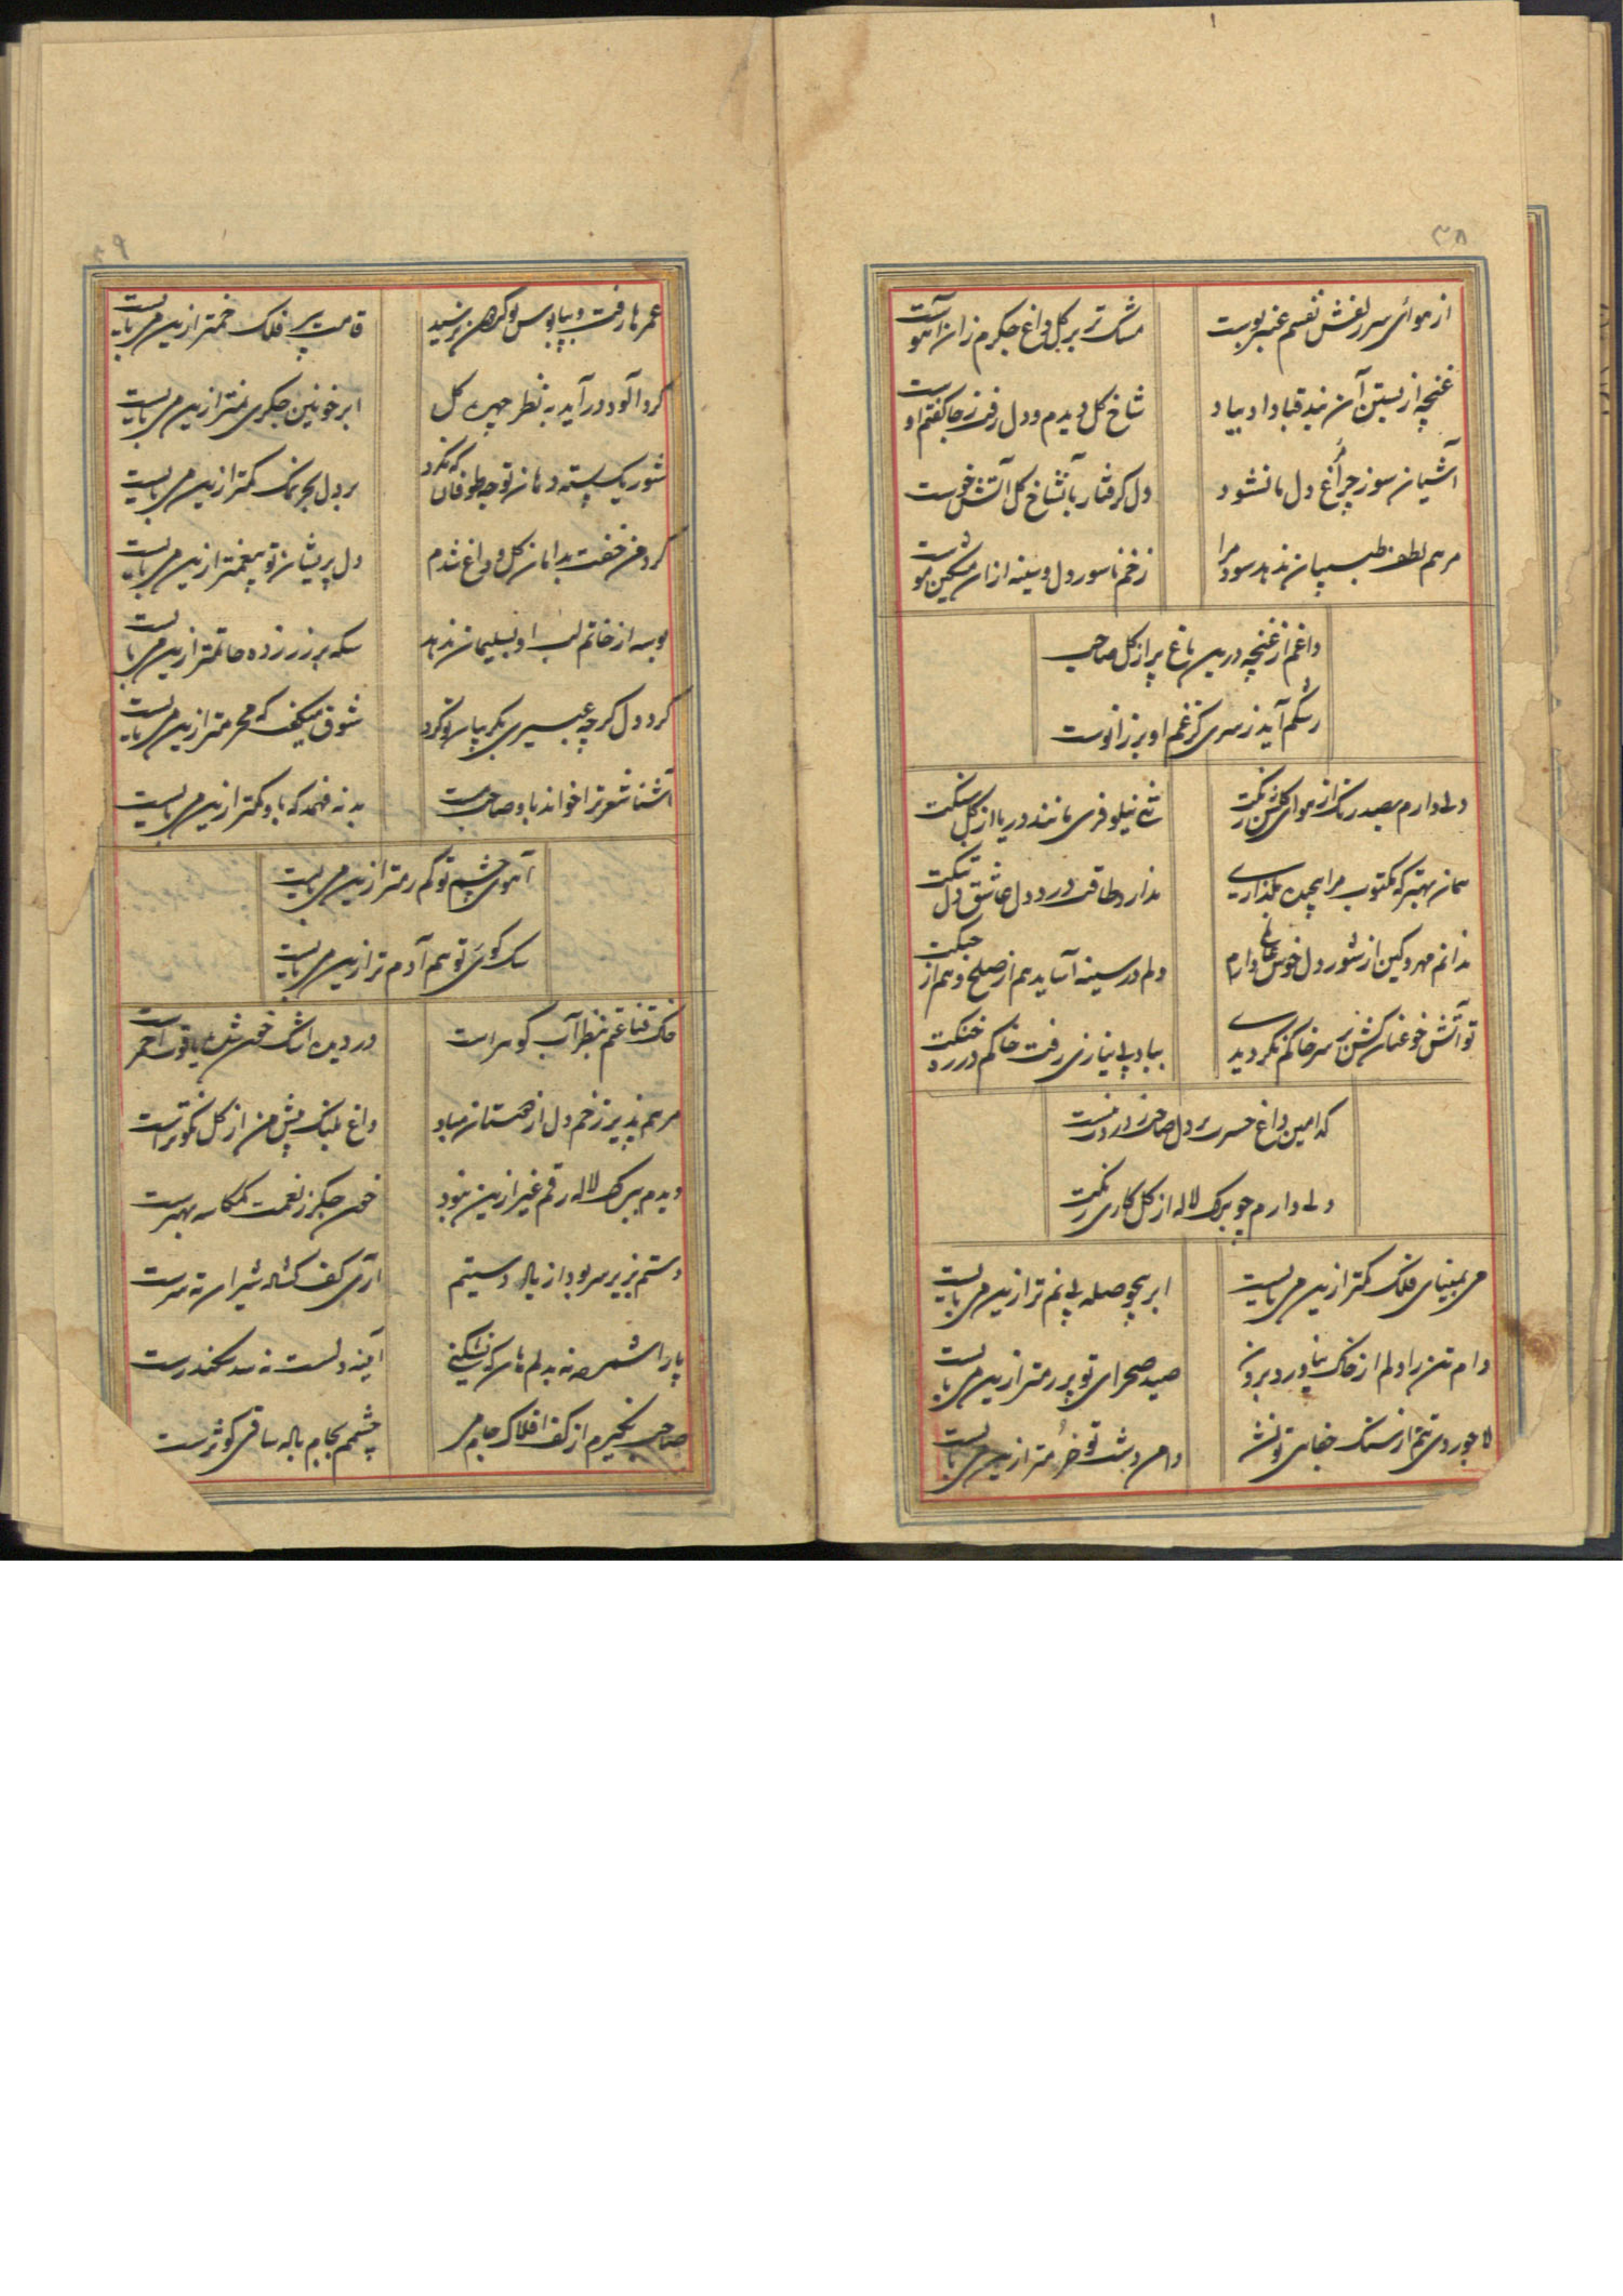 ۳۸
از هوای سر زلفش نفسم عنبر بوست
مشک تر بر گل داغ جگرم زان آهوست
غنچه از بستن آن بند قبا داد بیاد
شاخ گل دیدم و دل رفت ز جا گفتم اوست
آشیان سوز چراغ دل ما نشود
دل گرفتار بآتشاخ گل آتش خوست
مرهم لطف طبیبان ندهد سود مرا
زخم ناسور دل و سینه از ان مشکین موست
داغم از غنچه درین باغ پر از گل صاحب
رشکم آید ز سری کز غم او بر زانوست
دلی دارم بصد رنگ از هوای گلشن رنگت
نی نیلوفری مانند دریا از گل سنگت
همان بهتر که مکتوب مرا پیچیده بگذاری
ندارد طاقت درد دل عاشق دل تنگت
ندانم مهر و کین از شور دل خوش غافلی دارم
دلم در سینه آساید هم از صلح و هم از جنگت
تو آتش خو عنان کش بر سر خاکم نگردیدی
بباد بی نیازی رفت خاکم در ره خنگت
کدامین داغ حسرت بر دل صاحب نه در دست
دلی دارم چو برگ لاله از گل کاری رنگت
می بمینای فلک کمتر ازین می بایست
ابر بیحوصله بی نم تر ازین می بایست
دام تن را دلم از خاک نیاورد برون
صید صحرای تو پر رمتر ازین می بایست
لاجوردی تنم از سنگ جفای تو نشد
دامن دشت تو خرمتر ازین می بایست
۳۹
عمرها رفت و بپابوس تو گردن نرسید
قامت پیر فلک خمتر ازین می بایست
گرد آلود در آید به نظر چهره گل
ابر خونین جگری نمتر ازین می بایست
شور یک پسته دهان تو چه طوفان که نکرد
بر دل بحر نمک کمتر ازین می بایست
گرد من خفت بدامان گل و داغ شدم
دل پریشان تو بیغمتر ازین می بایست
بوسه از خاتم لب او بسلیمان ندهد
سکه بر زر زده حاتمتر ازین می بایست
گرد دل گرچه عبیری بگریبان تو کرد
شوق میگفت که محرمتر ازین می بایست
آشنا شعر ترا خواند باو صاحب
بد نه فهمد که باو کمتر ازین می بایست
آهوی چشم تو کم رمتر ازین می بایست
سگ کوی تو هم آدم تر ازین می بایست
خاک قناعتم بنظر آب گوهر است
در دیده اشک خون شده یاقوت احمر است
مرهم پذیر زخم دل از همتان مباد
داغ پلنگ پیش من از گل نکوتر است
دیدم ببرگ لاله رقم غیر ازین نبود
خون جگر ز نعمت همکاسه بهتر است
دستم بزیر سر بود از یاد دوستیم
آری کف گشاده شیران ته سر است
پا را شمرده نه بدلم هان که نشکنی
آیینه دلست نه سد سکندر است
صاحب نگیرم از کف افلاک جام می
چشمم بجام باله ساقی کوثر است